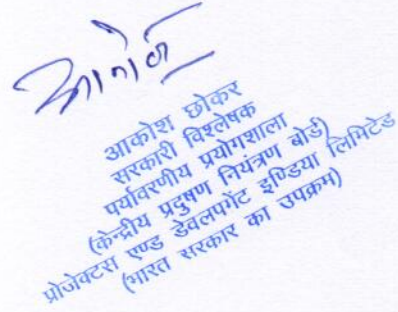 आकोश छोकर
सरकारी विश्लेषक
पर्यावरणीय प्रयोगशाला
(केन्द्रीय प्रदुषण नियंत्रण बोर्ड)
प्रोजेक्टस एण्ड डेवलपमेंट इण्डिया लिमिटेड
(भारत सरकार का उपक्रम)